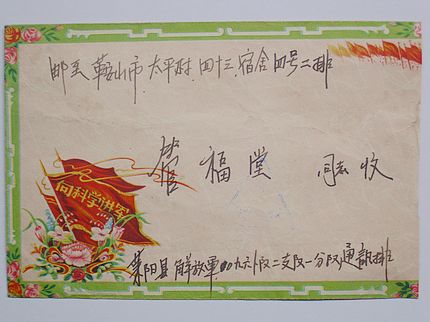 邮至 鞍山市 太平村 四十三 宿舍 四号二排
管福堂 同志 收
向科学进军
莱阳县 解放军 〇九六 部队 二支队一分队通讯排